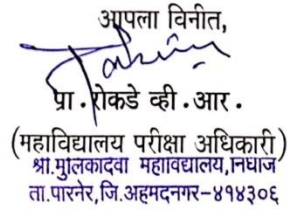 आपला विनीत,
प्रा.रोकडे व्ही.आर.
(महाविद्यालय परीक्षा अधिकारी)
श्री.मुलिकादेवी महाविद्यालय,निघोज
ता.पारनेर,जि.अहमदनगर-४१४३०६